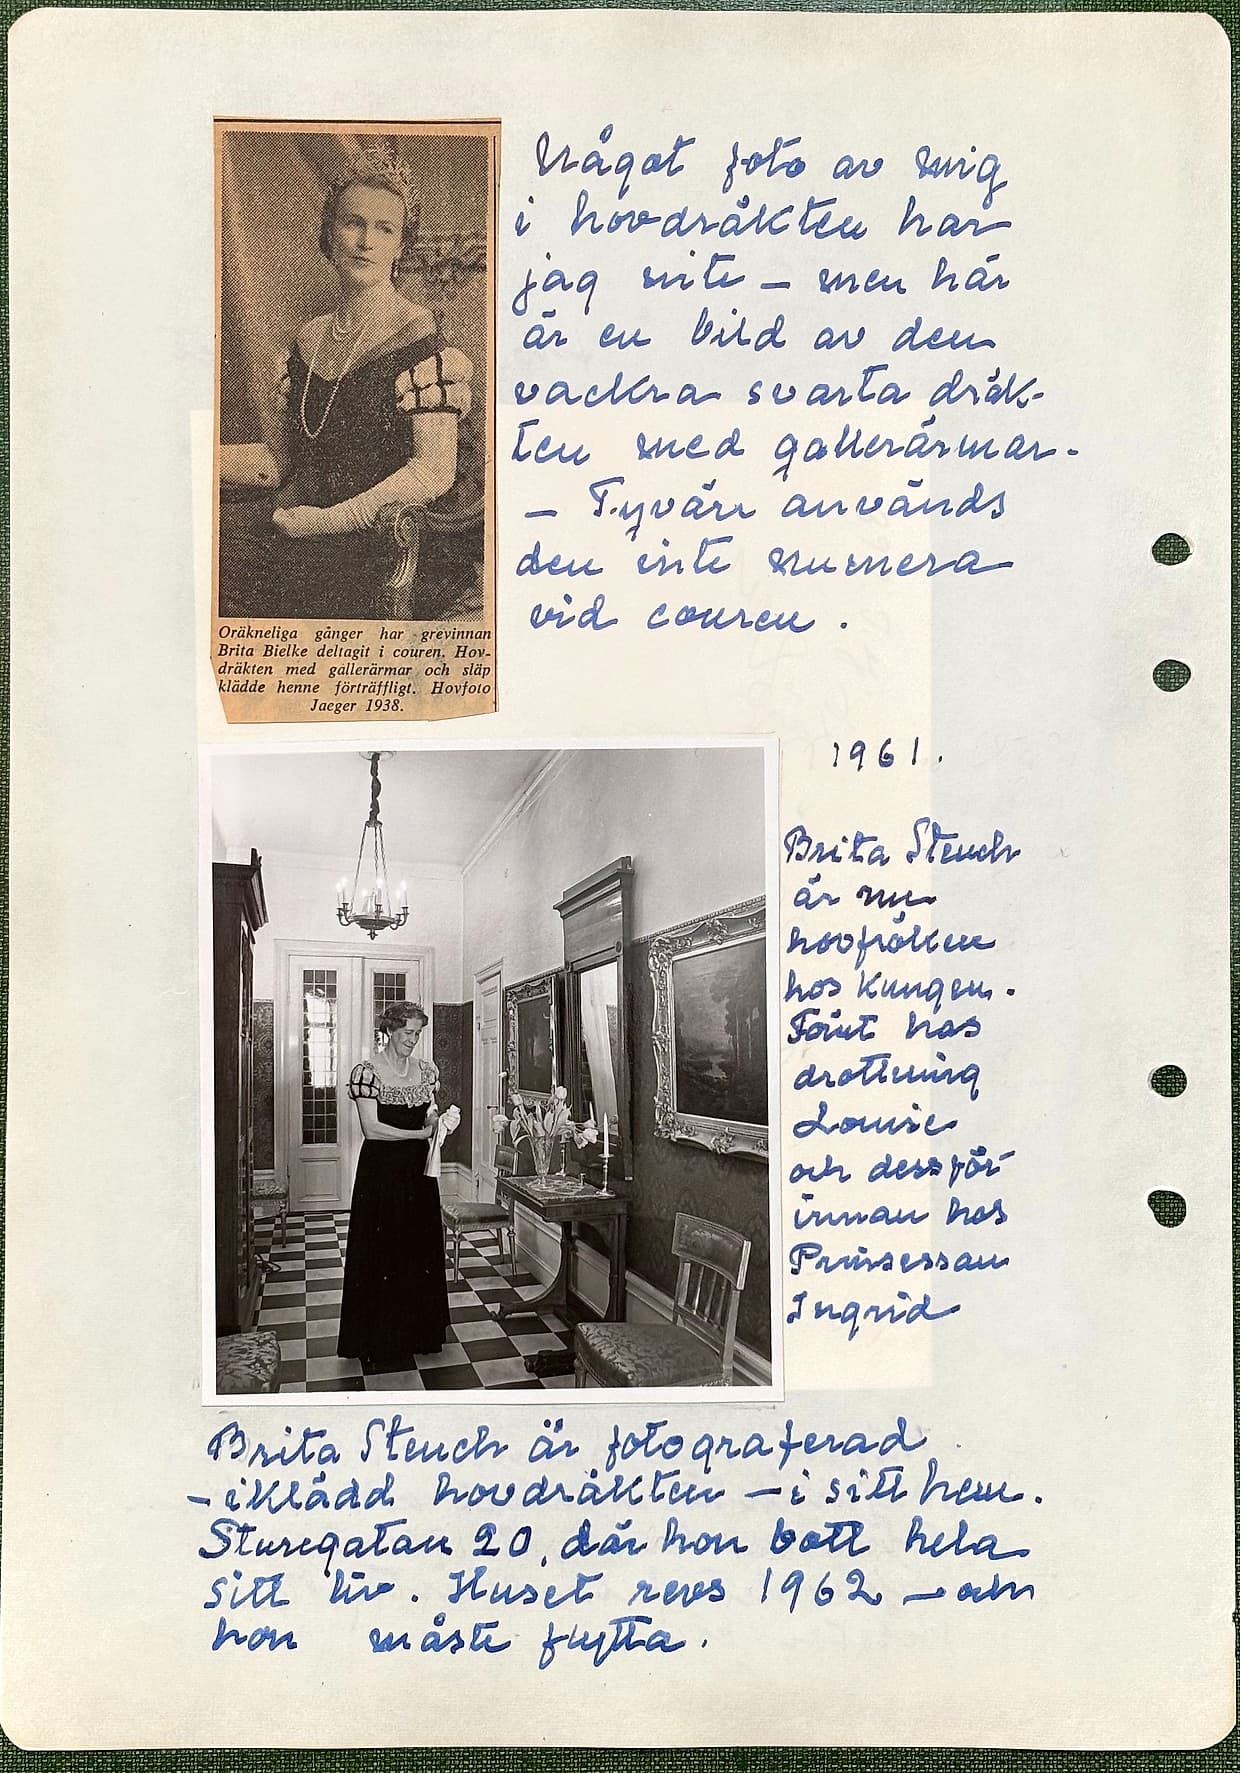 Något foto av mig
i hovdräkten har
jag inte – men här
är en bild av den
vackra svarta dräk-
ten med gallerärmar.
– Tyvärr används
den inte numera
vid couren.
Oräkneliga gånger har grevinnan
Brita Bielke deltagit i couren. Hov-
dräkten med gallerärmar och släp
klädde henne förträffligt. Hovfoto
Jaeger 1938.
1961.
Brita Steuch
är nu
hovfröken
hos Kungen.
Förut hos
drottning
Louise
och dessför
innan hos
Prinsessan
Ingrid
Brita Steuch är fotograferad
– iklädd hovdräkten – i sitt hem.
Sturegatan 20, där hon bott hela
sitt liv. Huset revs 1962 – och
hon måste flytta.